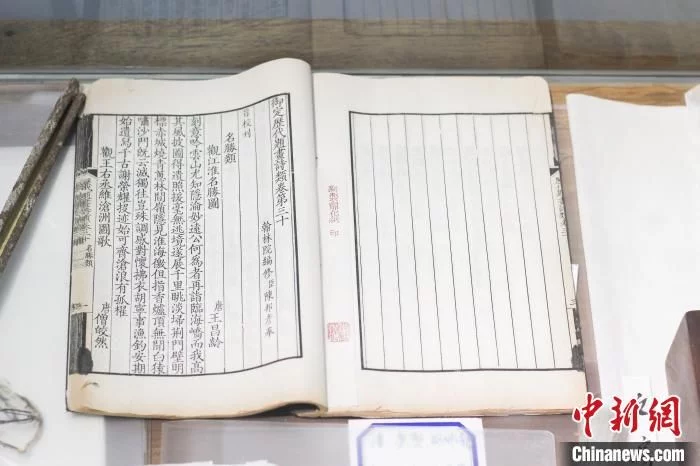 御定歷代題畫詩類卷第三十
翰林院編修臣陳邦彥奉
旨校刊
名勝類
觀江淮名勝圖 唐王昌齡
刻意吟雲山尤知隱淪妙遠公何為者再詣臨海嶠而我高
其風披圖得遺照援毫無逃境遂展千里眺淡掃荊門壁明
標赤城燒青蔥林間嶺隱見淮海徼但指香爐頂無聞白猿
嘯沙門既云滅獨往豈殊調感對懷拂衣胡寧事漁釣安期
始遺舄千古謝榮耀投迹始可齊滄浪有孤櫂
觀王右丞維滄洲圖歌 唐僧皎然
名勝類
印
中新网
Chinanews.com